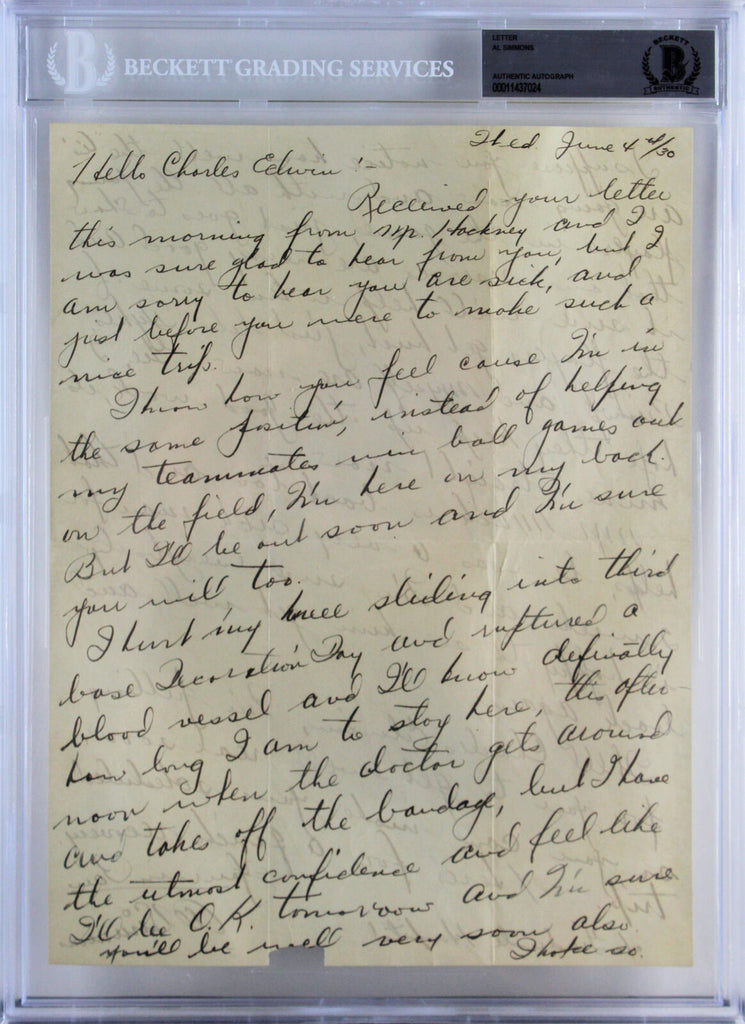 BECKETT GRADING SERVICES
LETTER
AL SIMMONS
AUTHENTIC AUTOGRAPH
00011437024
BECKETT
B
AUTHENTIC
Wed. June 4th/30
Hello Charles Edwin :-
Received your letter
this morning from Mr. Hackney and I
was sure glad to hear from you, but I
am sorry to hear you are sick, and
just before you were to make such a
nice trip.
I know how you feel cause I'm in
the same position, instead of helping
my teammates win ball games out
on the field, I'm here on my back.
But I'll be out soon and I'm sure
you will too.
I hurt my knee sliding into third
base Decoration Day and ruptured a
blood vessel and I'll know definatly
how long I am to stay here, this after-
noon when the doctor gets around
and takes off the bandage, but I have
the utmost confidence and feel like
I'll be O.K. tomorrow and I'm sure
you'll be well very soon also.
I hope so.